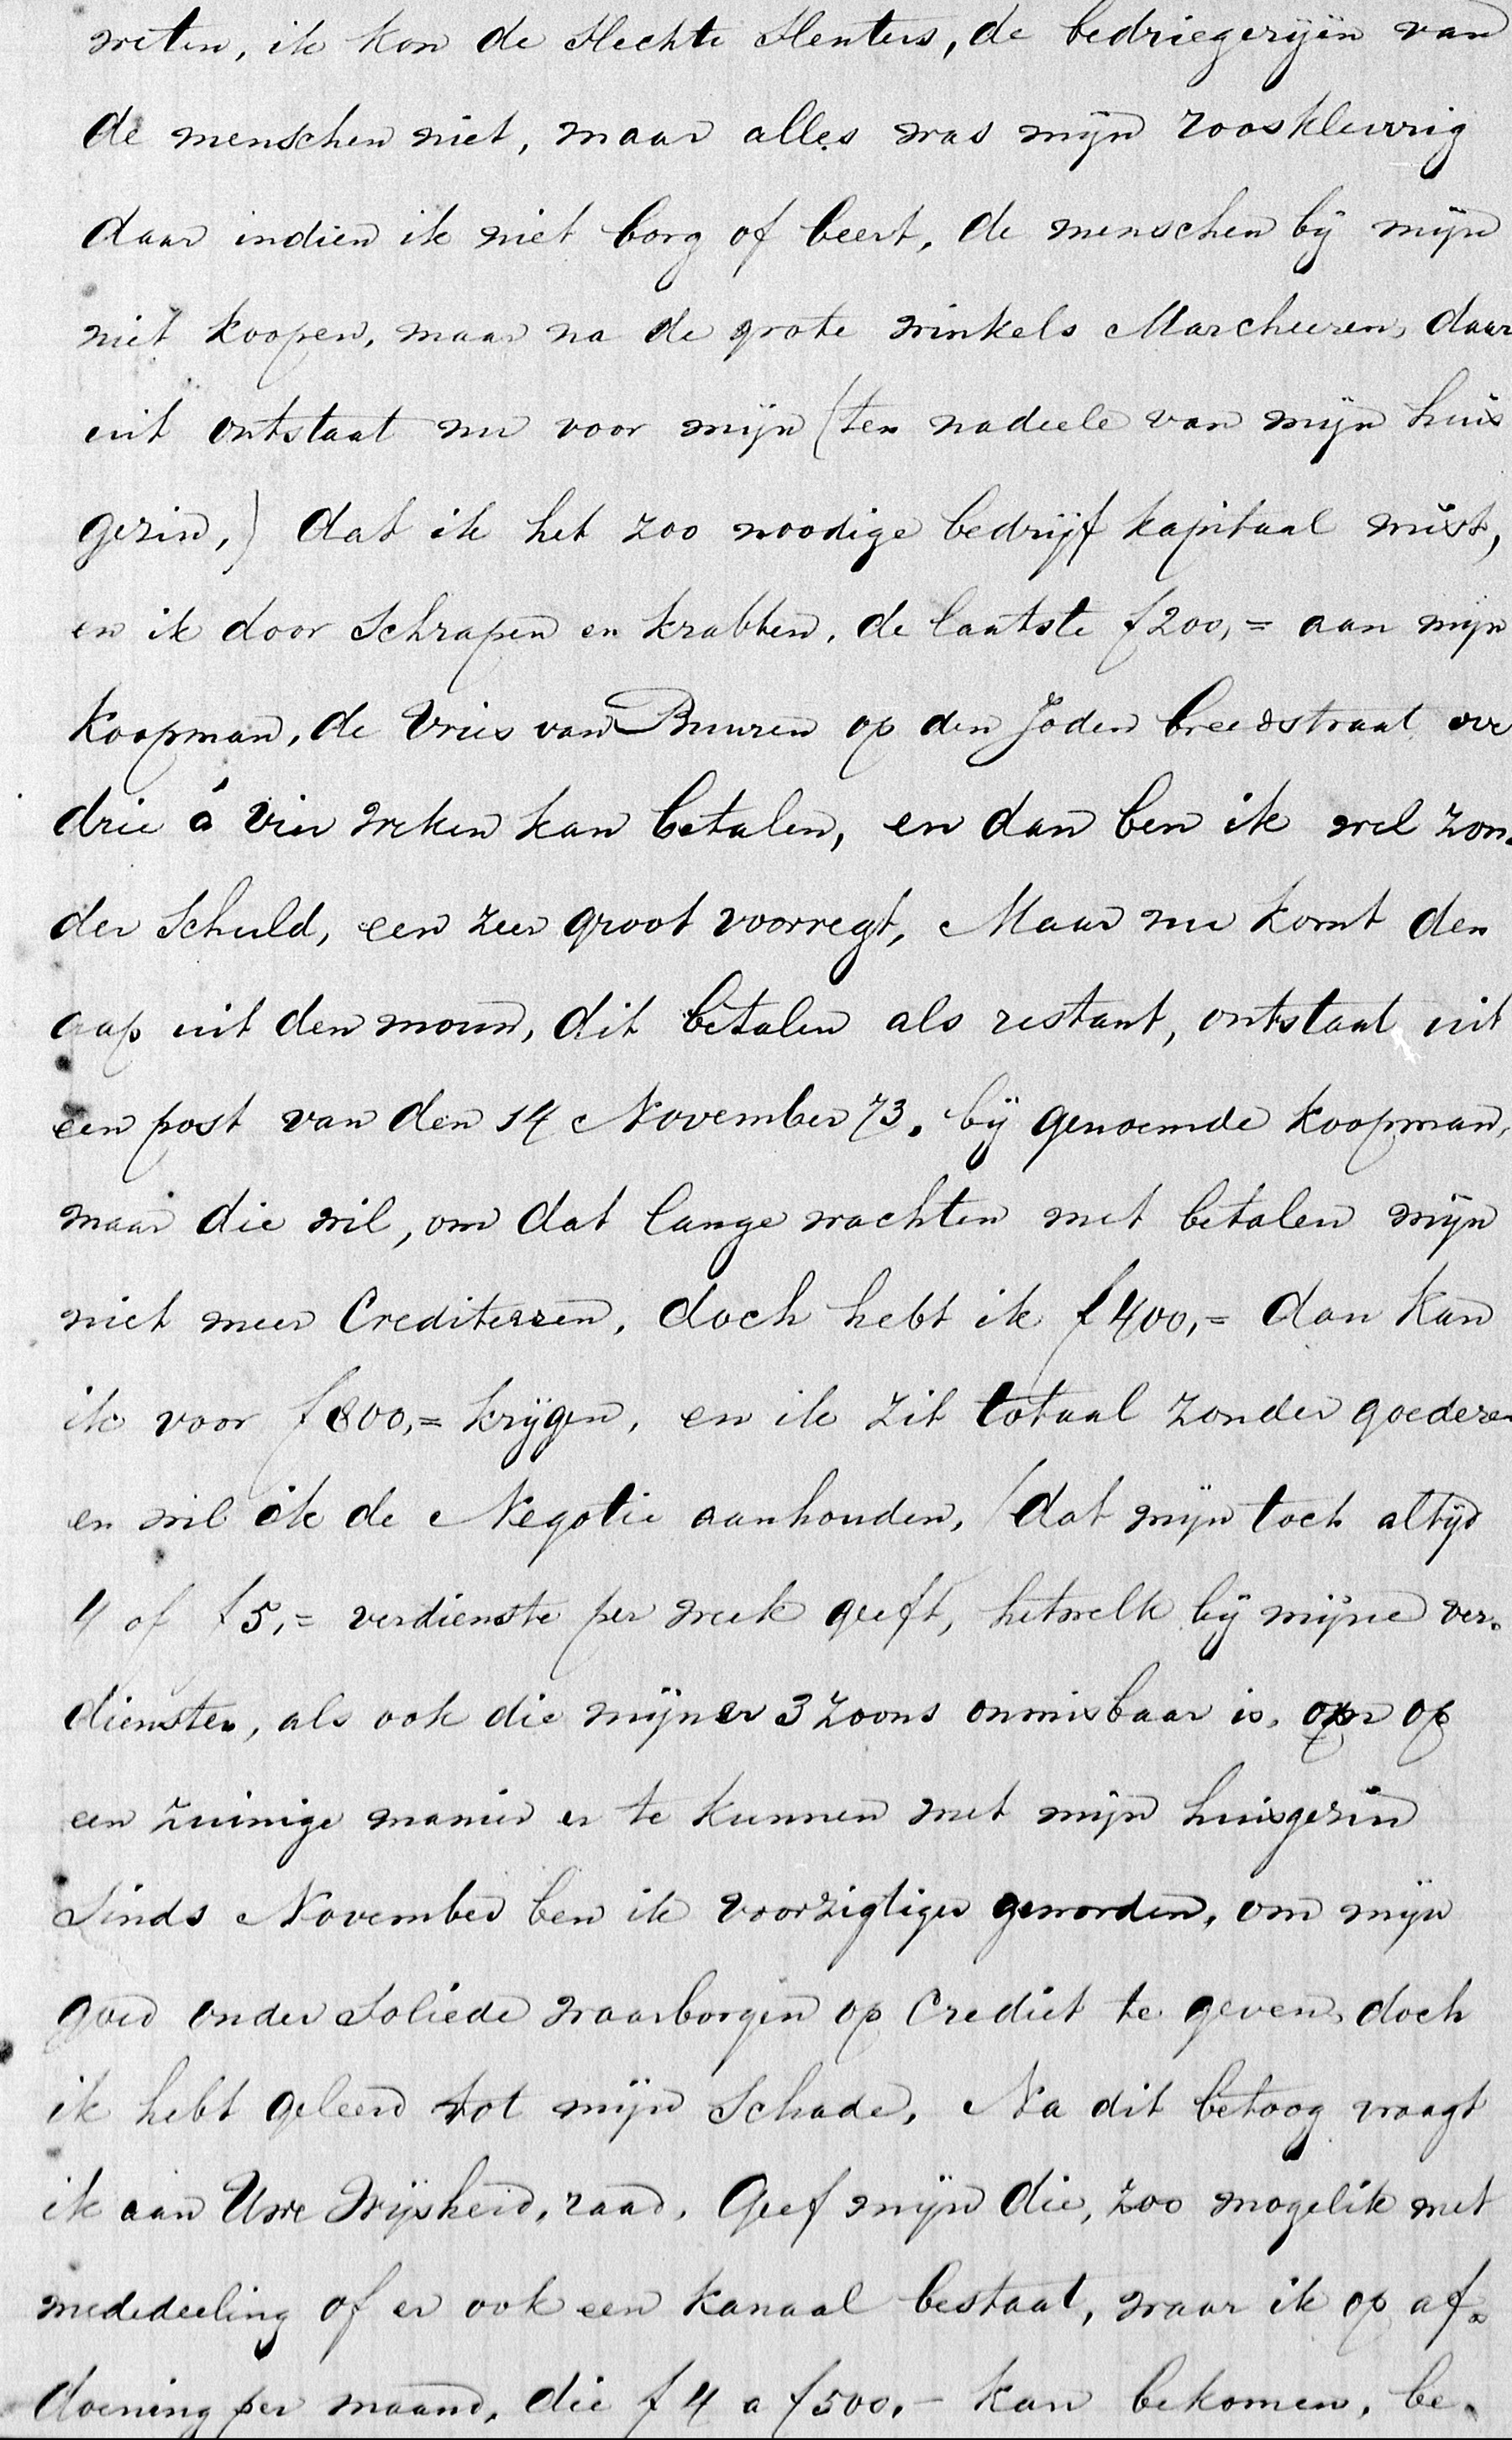 weten, ik kon de slechte slenters, de bedriegerijen van
de menschen niet, maar alles was mijn rooskleurig
daar indien ik niet borg of beert, de menschen bij mijn
niet koopen, maar na de grote winkels Marcheeren, daar
uit ontstaat nu voor mijn (ten nadeele van mijn huis
gezin,) dat ik het zoo noodige bedrijf kapitaal mist,
en ik door Schrapen en krabben, de laatste f200,= aan mijn
koopman, de Vries van Buuren op den Joden breedstraat ove
drie á vier weken kan betalen, en dan ben ik wel zon.
der Schuld, een zeer groot voorregt, Maar nu komt den
aap uit den mouw, dit betalen als restant, ontstaat uit
een post van den 14 November 73. bij genoemde koopman,
maar die wil, om dat lange wachten met betalen mijn
niet meer Crediteeren, doch hebt ik f400,= dan kan
ik voor f800,= krijgen, en ik zit totaal zonder goederen
en wil ik de Negotie aanhouden, (dat mijn toch altijd
4 of f5,= verdienste per week geeft, hetwelk bij mijne ver.
diensten, als ook die mijner 3 zoons onmisbaar is, om op
een zuinige manier er te kunnen met mijn huisgezin
Sinds November ben ik voorzigtiger geworden, om mijn
goed onder Soliede waarborgen op Crediet te geven, doch
ik hebt geleerd tot mijn Schade, Na dit betoog vraagt
ik aan Uwe Wijsheid, raad, Geef mijn die, zoo mogelik met
mededeeling of er ook een kanaal bestaat, waar ik op af.
doening per maand, die f4 a f500,- kan bekomen, be.